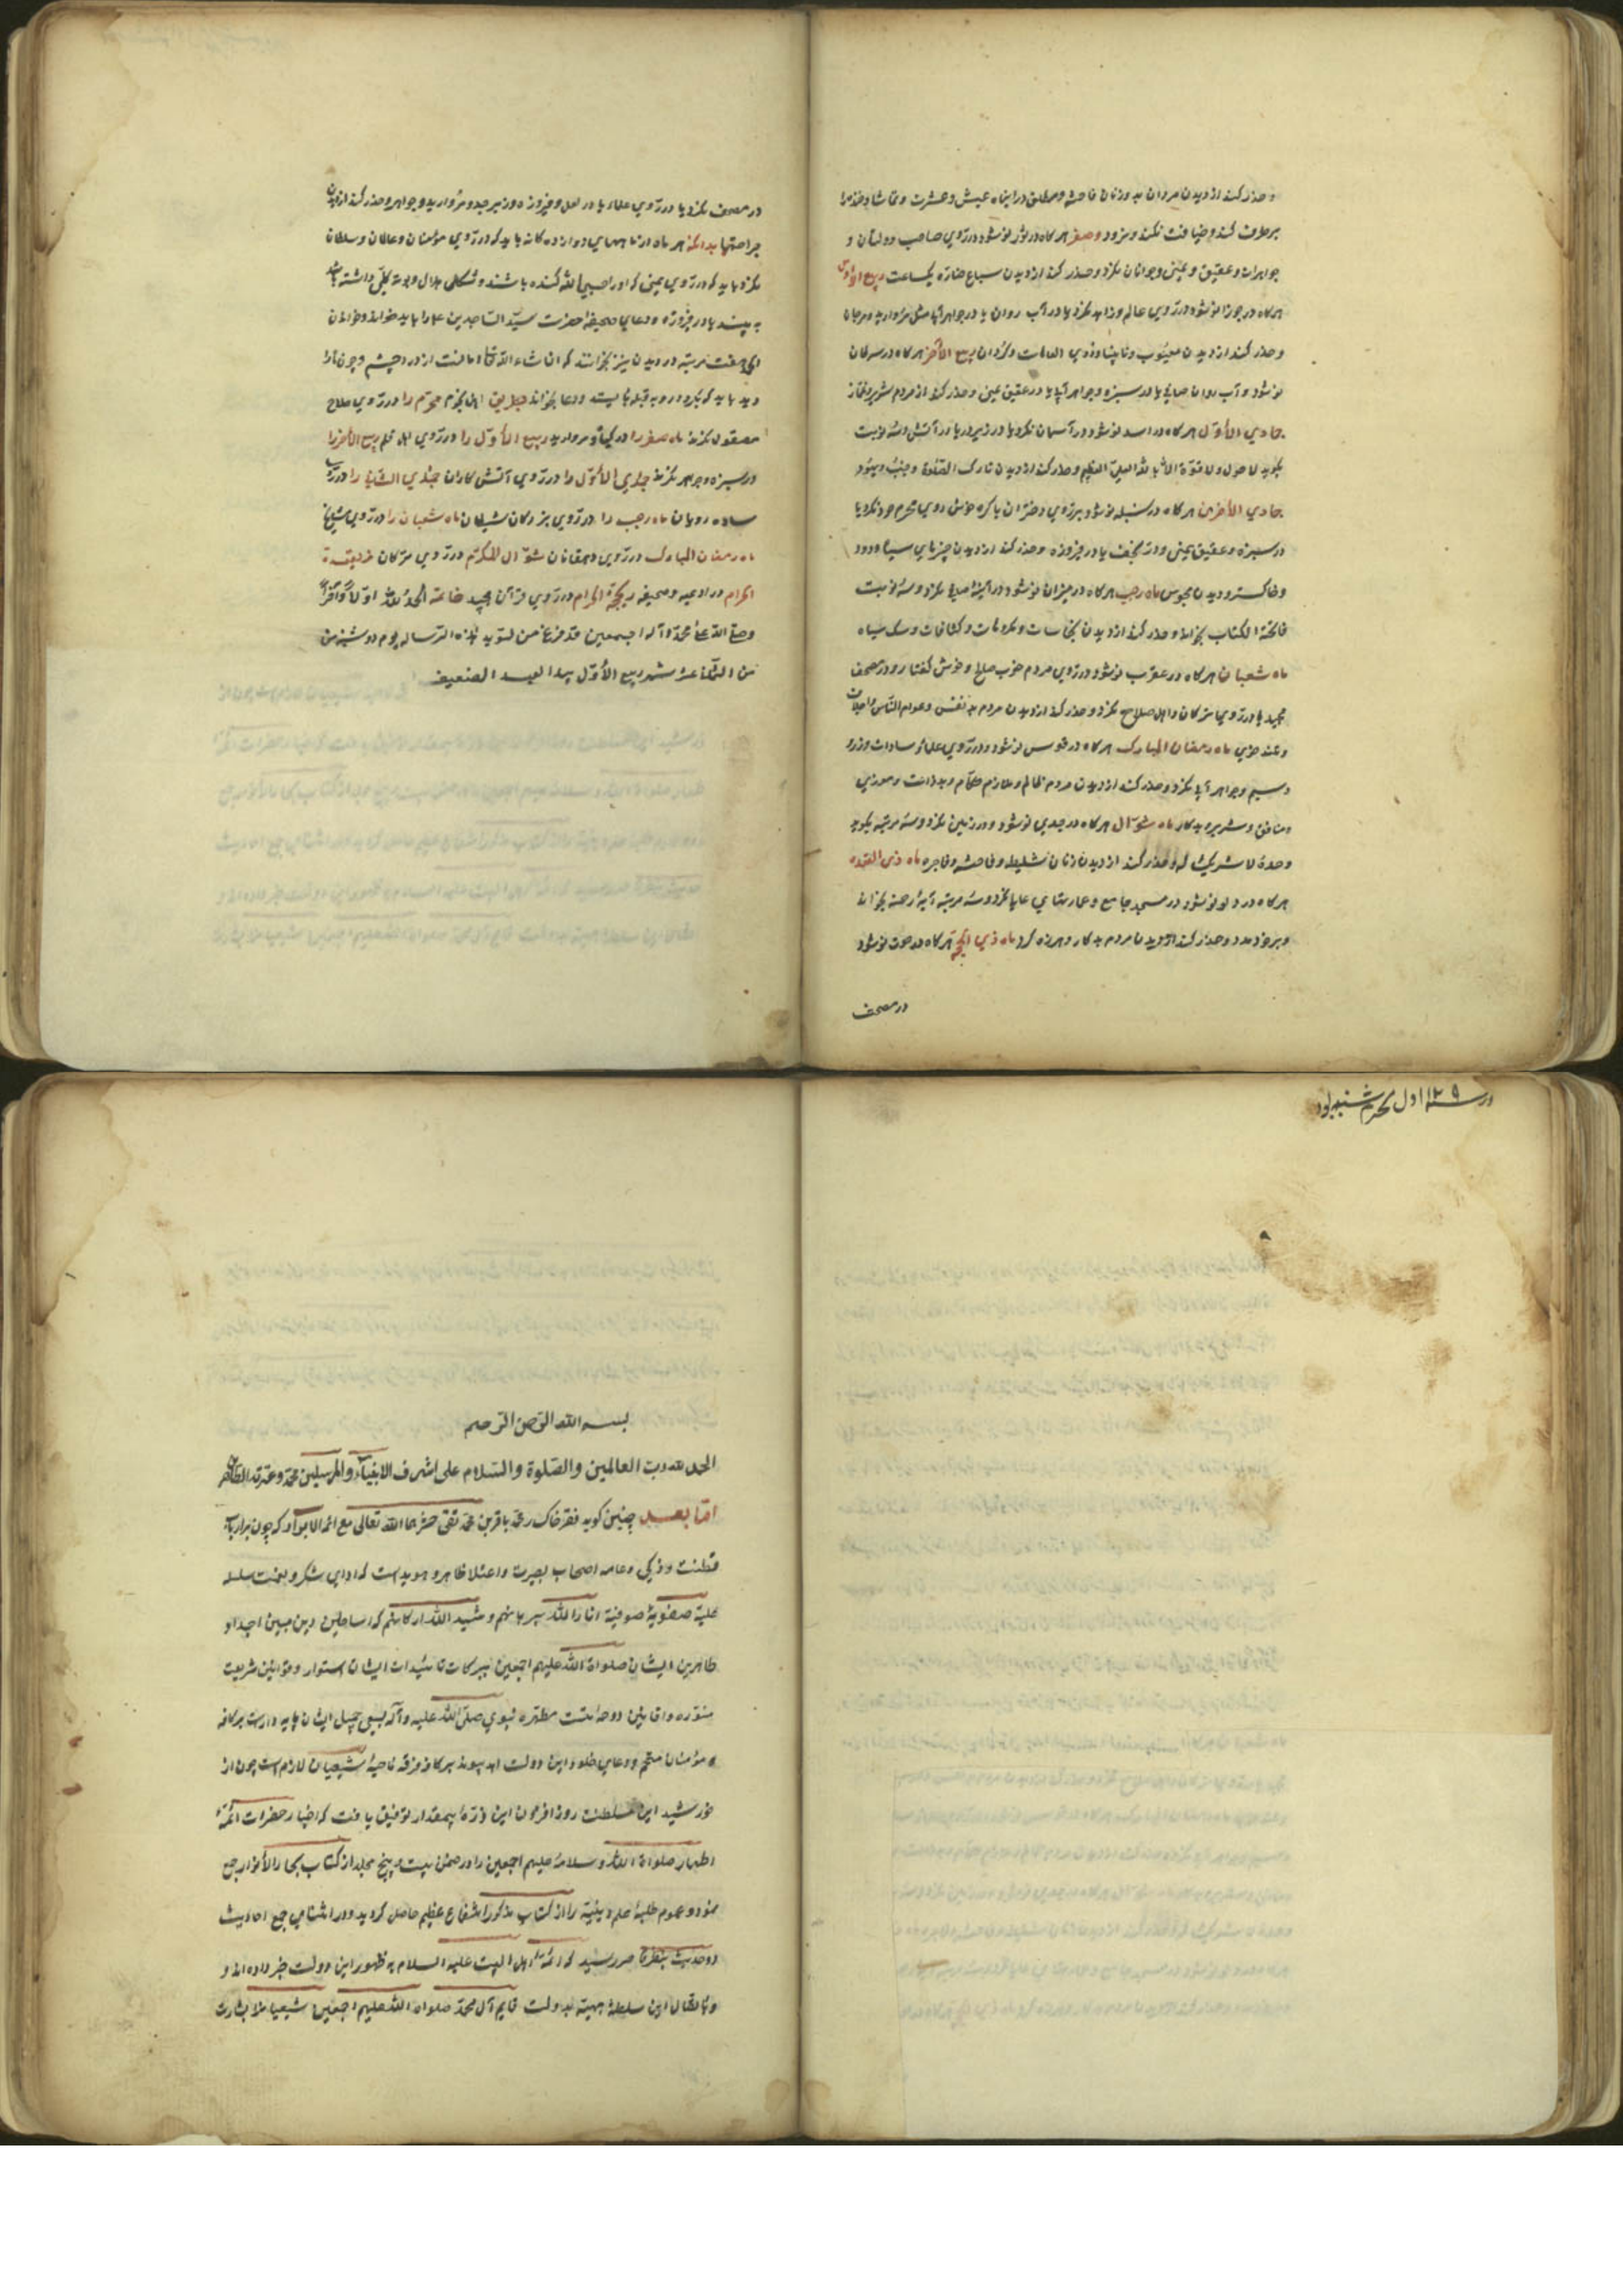 و حذر کند از دیدن مردان بد و زنان فاحشه و مطلق در این ماه عیش و عشرت و تماشا و خذمرا
برطرف کند و ضیافت نکند و نرود و صفر هرگاه در ثور نو شود در روی صاحب دولتان و
جواهرات و عقیق و یمنی و جوانان نگرد و حذر کند از دیدن سباع ضاره یکساعت ربیع الاول
هرگاه در جوزا نو شود در روی عالم و زاهد نگرد یا در آب روان یا در جواهر آبها مثل مروارید و مرجان
و حذر کند از دیدن معیوب و نابینا و ذوی العاهات و کژدان ربیع الآخر هرگاه در سرطان
نو شود و آب روان صافی یا در سبزه و جواهر آبها یا در عقیق یمنی و حذر کند از مردم شریر و غماز
جمادی الأوّل هرگاه در اسد نو شود در آسمان نگرد یا در زیر و در یا در آتش و سه نوبت
بگوید لا حول و لا قوّة الا بالله العلیّ العظیم و حذر کند از دیدن تارک الصّلوة و جنب و یهود
جمادی الأخری هرگاه در سنبله نو شود بر روی دختران باکره خوش روی محرم خود نگرد یا
در سبزه و عقیق یمنی و درّ نجف یا در فیروزه و حذر کند از دیدن چیزهای سیاه و دود
و خاکستر و دیدن مجوس ماه رجب هرگاه در میزان نو شود در آینهٔ صافی نگرد و سه نوبت
فاتحة الکتاب بخواند و حذر کند از دیدن نجاسات و مکروهات و کثافات و سک سیاه
ماه شعبان هرگاه در عقرب نو شود در روی مردم خوب صالح و خوش گفتار و در مصحف
مجید یا در روی نزرکان و اهل صلاح نگرد و حذر کند از دیدن مردم بد نفس و عوام النّاس و اجلاف
و تند خوی ماه رمضان المبارک هرگاه در قوس نو شود در روی علما و سادات و زر و
و سیم و جواهر آبی نگرد و حذر کند از دیدن مردم ظالم و ملازم حکّام و بدذات و موذی
و منافق و شریر و بدکار ماه شوّال هرگاه در جدی نو شود در زمین نگرد و سه مرتبه بگوید
وحدهٔ لا شریک له و حذر کند از دیدن زنان سلیطه و فاحشه و فاجره ماه ذی القعده
هرگاه در دلو نو شود در مسجد جامع و عمارتهای عالی نگرد و سه مرتبه آیهٔ رحمة بخواند
و بر خود دمد و حذر کند از دیدن مردم بدکار و هرزه گرد ماه ذی الحجّة هرگاه در حوت نو شود
در مصحف
در مصحف نگرد یا در روی علماء یا در لعل و فیروزه و زبرجد و مروارید و جواهر و حذر کند از دیدن
جراحتها بدانکه هر ماه در ماههای دوازده گانه باید که در روی مؤمنان و عالمان و سلطان
نگرد باید که در روی یمنی که اورا صبی الله کنده باشند و شکلی هلال و بوته یکی داشته باشد
به بیند یا در فیروزه و دعای صحیفهٔ حضرت سیّد السّاجدین علیه را باید خواند و خواندن
الحمد هفت مرتبه در دیدن نیز بخوانند که ان شاء الله تعالی امانست از درد چشم و چون ماه
دید باید که نگردد رو به قبله بایستد و دعا بخواند بطریق اهل نجوم محرّم را در روی صلاح
مصقول نگرند ماه صفر را در گیاه و مروارید ربیع الأوّل را در روی اهل قلم ربیع الآخر را
در سبزه و جواهر نگرند جمادی الاوّل را در روی آتش کاران جمادی الثّانی را در روی
ساده رویان ماه رجب را در روی بزرکان شیطان ماه شعبان را در روی مشایخ
ماه رمضان المبارک در روی دهقانان شوّال المکرّم در روی ترکان ذیقعدة
الحرام در ادعیه و صحیفه ذیحجّة الحرام در روی قرآن مجید خاتمه الحمد لله اوّلاً و آخراً
و صلی الله علی محمّد و آله اجمعین قد فرغ من تسوید هذه الرّساله یوم دوشنبه من
من الثّانی عشر شهر ربیع الأوّل بید العبد الضعیف
در سنه ۱۲۹ اول محرم شنبه بود
بسم الله الرّحمن الرّحیم
الحمد لله رب العالمین والصّلوة والسّلام علی اشرف الانبیاء والمرسلین محمّد وعترته الطاهرین
امّا بعد چنین کوید فقیر خاک ره محمّد باقر بن محمّد تقی حشرهما الله تعالی مع ائمة الابرار که چون بر ارباب
فطنت و ذکی و عامه اصحاب بصیرت و اعتلا ظاهر و هویداست که ادای شکر و نعمت سلسله
علیّهٔ صفویّهٔ صوفیه انار الله برهانهم و شید الله ارکانهم که اساطین دین مبین اجداد
طاهرین ایشان صلواة الله علیهم اجمعین ببرکات تائیدات ایشان استوار و قوانین شریعت
منوّره و اقانین دوحه ملّت مطهّره نبوی صلّی الله علیه و آله بسعی جمیل ایشان پایه دار است بر کافه
مؤمنان متحتّم و دعای خلود این دولت ابد پیوند بر کافهٔ فرقه ناجیهٔ شیعیان لازم است چون از
خورشید این سلطنت روز افزون این ذرّهٔ بیمقدار توفیق یافت که اخبار حضرات ائمّهٔ
اطهار صلواة الله و سلامهٔ علیهم اجمعین را در ضمن بیست و پنج مجلد از کتاب بحار الأنوار جمع
نمود و عموم طلبهٔ علم دینیّه را از کتاب مذکور انتفاع عظیم حاصل کردید و در اثنای جمع احادیث
دو حدیث بنظر قاصر رسید که ائمّهٔ اهل البیت علیه السلام به ظهور این دولت خبر داده اند و
و باتصال این سلسلهٔ بهیّه بدولت قایم آل محمّد صلواة الله علیهم اجمعین شیعیانرا بشارت